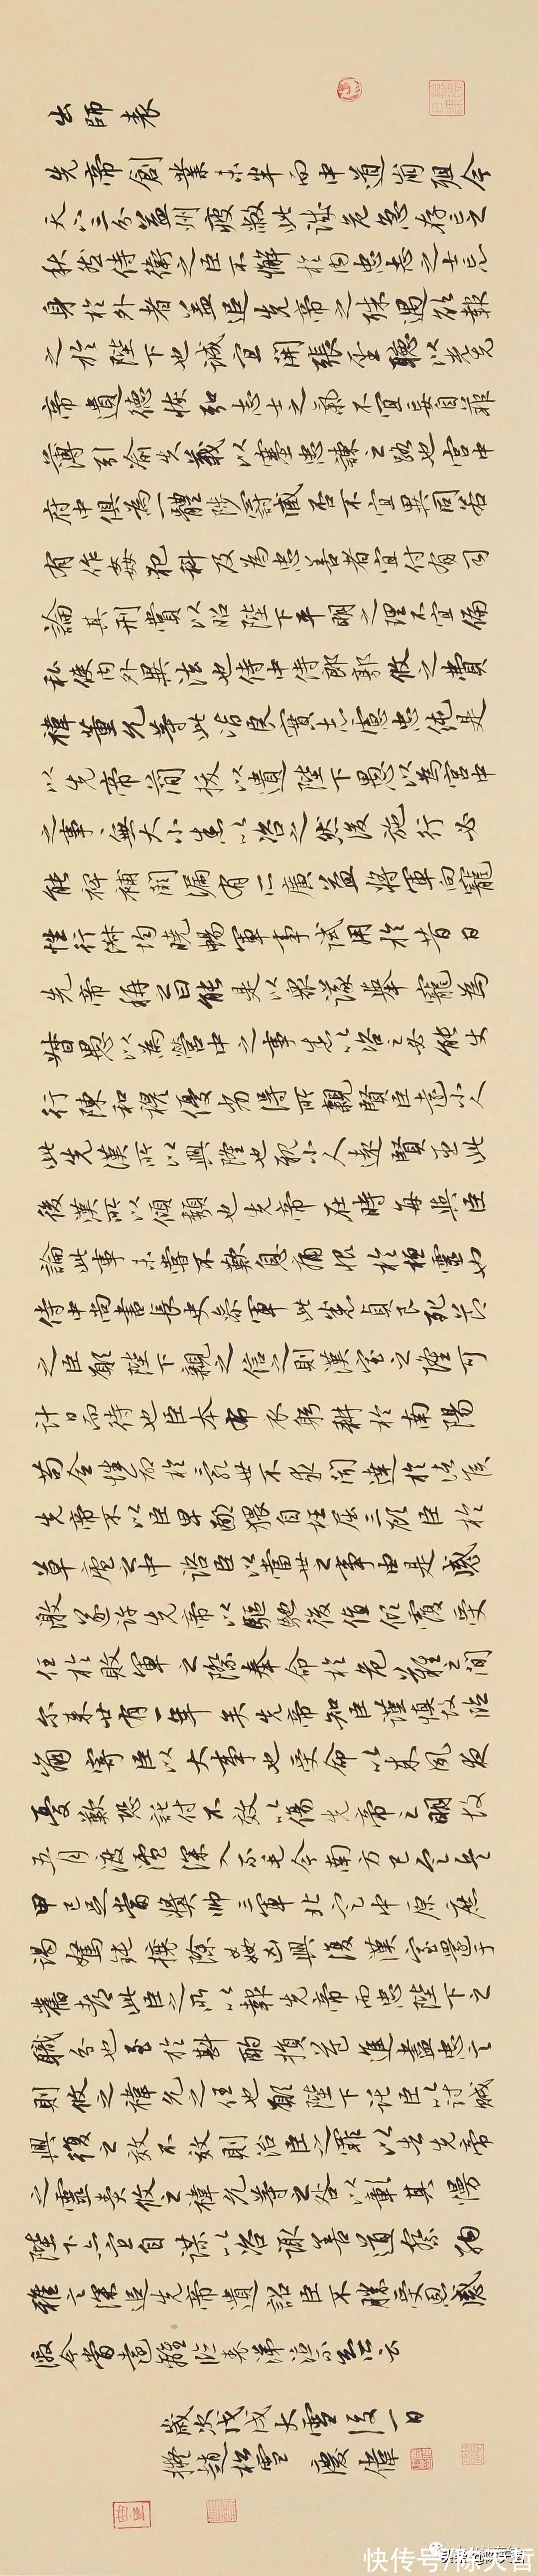 出師表
先帝創業未半而中道崩殂今
天下三分益州疲敝此誠危急存亡之
秋然侍衛之臣不懈於內忠志之士忘
身於外者蓋追先帝之殊遇欲報
之於陛下也誠宜開張聖聽以光先
帝遺德恢弘志士之氣不宜妄自菲
薄引喻失義以塞忠諫之路也宮中
府中俱為一體陟罰臧否不宜異同若
有作姦犯科及為忠善者宜付有司
論其刑賞以昭陛下平明之理不宜偏
私使內外異法也侍中侍郎郭攸之費
禕董允等此皆良實志慮忠純是
以先帝簡拔以遺陛下愚以為宮中
之事事無大小悉以咨之然後施行必
能裨補闕漏有所廣益將軍向寵
性行淑均曉暢軍事試用於昔日
先帝稱之曰能是以眾議舉寵為
督愚以為營中之事悉以咨之必能使
行陳和穆優劣得所親賢臣遠小人
此先漢所以興隆也親小人遠賢臣此
後漢所以傾頹也先帝在時每與臣
論此事未嘗不歎息痛恨於桓靈也
侍中尚書長史參軍此悉貞良死節
之臣願陛下親之信之則漢室之隆可
計日而待也臣本布衣躬耕於南陽
苟全性命於亂世不求聞達於諸侯
先帝不以臣卑鄙猥自枉屈三顧臣於
草廬之中諮臣以當世之事由是感
激遂許先帝以驅馳後值傾覆受
任於敗軍之際奉命於危難之間
爾來廿有一年矣先帝知臣謹慎故臨
崩寄臣以大事也受命以來夙夜
憂歎恐託付不效以傷先帝之明故
五月渡瀘深入不毛今南方已定兵
甲已足當獎帥三軍北定中原庶
竭駑鈍攘除姦凶興復漢室還于
舊都此臣之所以報先帝而忠陛下之
職分也至於斟酌損益進盡忠言
則攸之禕允之任也願陛下託臣以討賊
興復之效不效則治臣之罪以告先帝
之靈責攸之禕允等之咎以彰其慢
陛下亦宜自謀以咨諏善道察納
雅言深追先帝遺詔臣不勝受恩感
激今當遠離臨表涕泣不知所云
歲次戊戌大雪後一日
擬趙松雪 慶偉
快传号/陈天哲